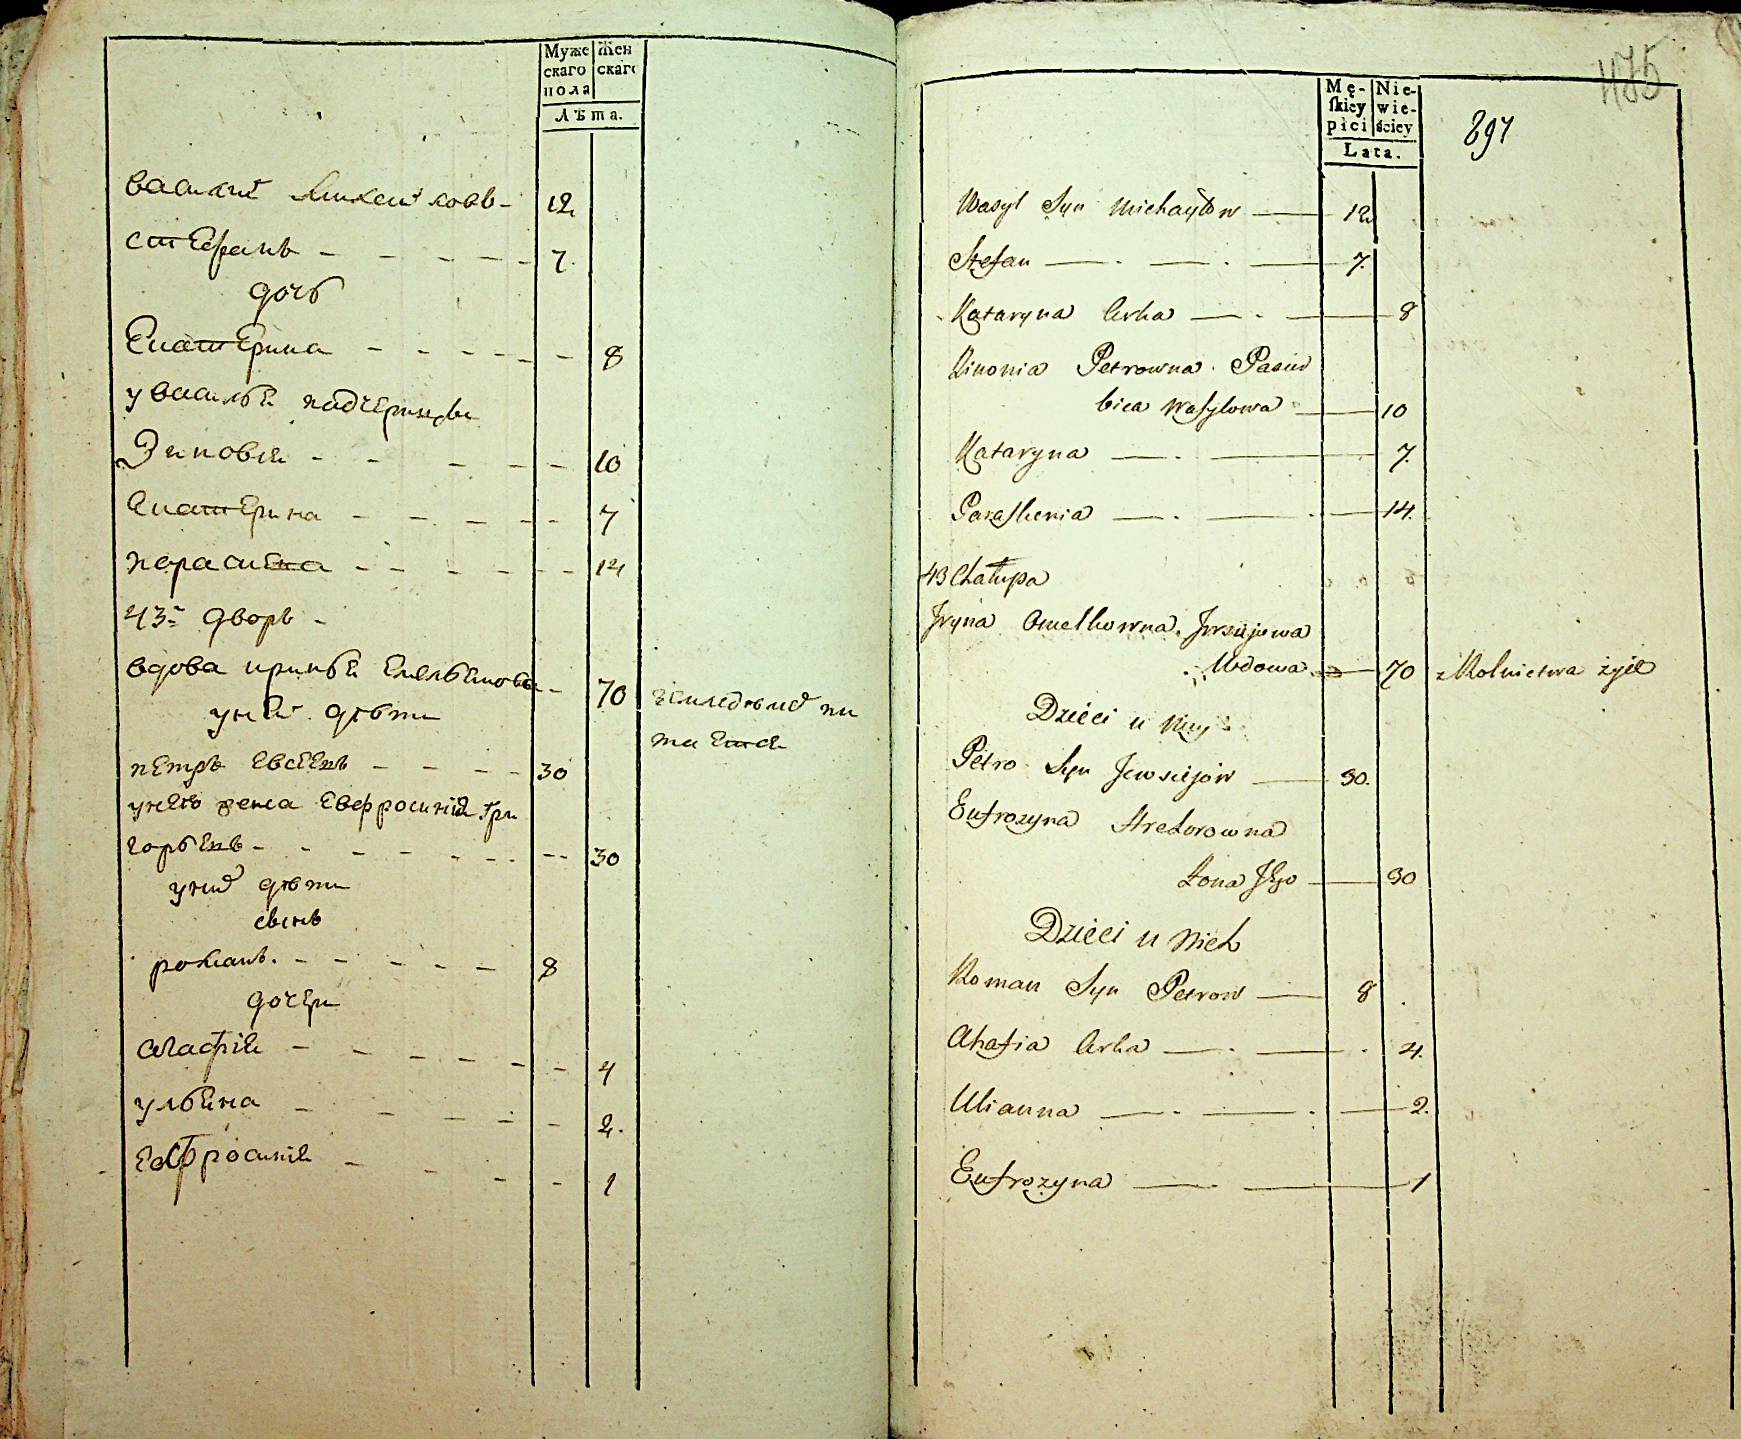 Муже Жен
скаго скаго
пола
Лѣта.
василий михайловъ - 12
стефанъ - 7
дочь
Екатерина - 8
у василья падчерицы
Зиновия - 10
Екатерина - 7
параскева - 14
43й дворъ -
вдова иринья Емельянова - 70 земледелием пи
таетсе
у ней дѣти
петръ Евсеевъ - 30
у него жена Евфросиния Гри
горьева - 30
у них дѣти
сынъ
романъ. - 8
дочери
агафия - 4
ульяна - 2.
Ефросиния - 1
475
Mę- Nie-
skiey wie-
płci ściey
Lata.
897
Wasyl Syn Michayłow — 12
Stefan — 7.
Kataryna Corka — 8
Zinonia Petrowna Pasier
bica Wasylowa — 10
Kataryna — 7.
Paraskenia — 14.
43 Chałupa
Jryna Omelkowna Jewsiejowa
Wdowa — 70 z Rolnictwa żyie
Dzieci u Niey
Petro Syn Jewsiejów — 30.
Eufrozyna
Żona Jego — 30
Dzieci u Nich
Roman Syn Petrow — 8
Ahafia Corka — 4.
Ulianna — 2.
Eufrozyna — 1